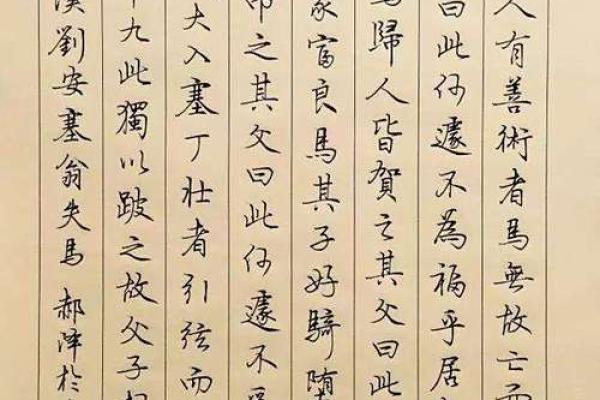 人有善術者馬無故亡而
曰此何遽不為福乎居
馬歸人皆賀之其父曰此
家富良馬其子好騎墮
弔之其父曰此何遽不為
大入塞丁壯者引弦而
十九此獨以跛之故父子相
漢劉安塞翁失馬 郝澤於